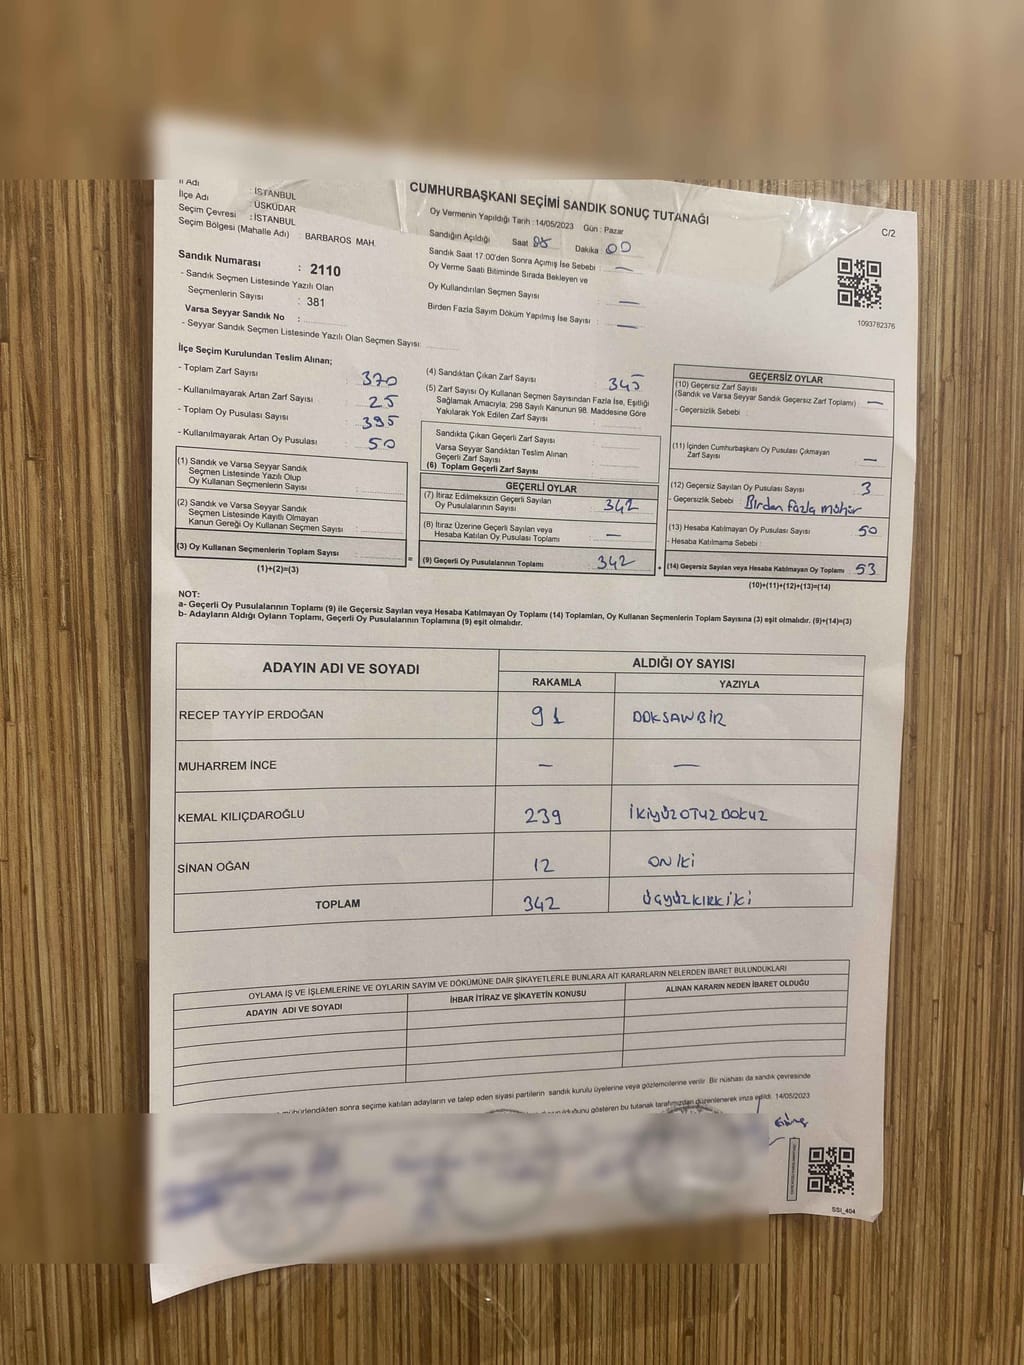 İl Adı : İSTANBUL
İlçe Adı : ÜSKÜDAR
Seçim Çevresi : İSTANBUL
Seçim Bölgesi (Mahalle Adı) : BARBAROS MAH.
Sandık Numarası : 2110
- Sandık Seçmen Listesinde Yazılı Olan
Seçmenlerin Sayısı : 381
Varsa Seyyar Sandık No :
- Seyyar Sandık Seçmen Listesinde Yazılı Olan Seçmen Sayısı:
CUMHURBAŞKANI SEÇİMİ SANDIK SONUÇ TUTANAĞI
C/2
Oy Vermenin Yapıldığı Tarih : 14/05/2023 Gün : Pazar
Sandığın Açıldığı Saat Dakika : 00
Sandık Saat 17.00'den Sonra Açımış İse Sebebi : —
Oy Verme Saati Bitiminde Sırada Bekleyen ve
Oy Kullandırılan Seçmen Sayısı : —
Birden Fazla Sayım Döküm Yapılmış İse Sayısı : —
1093782376
İlçe Seçim Kurulundan Teslim Alınan;
- Toplam Zarf Sayısı : 370
- Kullanılmayarak Artan Zarf Sayısı : 25
- Toplam Oy Pusulası Sayısı : 395
- Kullanılmayarak Artan Oy Pusulası : 50
(1) Sandık ve Varsa Seyyar Sandık
Seçmen Listesinde Yazılı Olup
Oy Kullanan Seçmenlerin Sayısı :
(2) Sandık ve Varsa Seyyar Sandık
Seçmen Listesinde Kayıtlı Olmayan
Kanun Gereği Oy Kullanan Seçmen Sayısı :
(3) Oy Kullanan Seçmenlerin Toplam Sayısı :
(1)+(2)=(3)
(4) Sandıktan Çıkan Zarf Sayısı : 345
(5) Zarf Sayısı Oy Kullanan Seçmen Sayısından Fazla İse, Eşitliği
Sağlamak Amacıyla; 298 Sayılı Kanunun 98. Maddesine Göre
Yakılarak Yok Edilen Zarf Sayısı :
Sandıkta Çıkan Geçerli Zarf Sayısı :
Varsa Seyyar Sandıktan Teslim Alınan
Geçerli Zarf Sayısı :
(6) Toplam Geçerli Zarf Sayısı :
GEÇERLİ OYLAR
(7) İtiraz Edilmeksizin Geçerli Sayılan
Oy Pusulalarının Sayısı : 342
(8) İtiraz Üzerine Geçerli Sayılan veya
Hesaba Katılan Oy Pusulası Toplamı : —
(9) Geçerli Oy Pusulalarının Toplamı : 342
GEÇERSİZ OYLAR
(10) Geçersiz Zarf Sayısı
(Sandık ve Varsa Seyyar Sandık Geçersiz Zarf Toplamı) : —
- Geçersizlik Sebebi :
(11) İçinden Cumhurbaşkanı Oy Pusulası Çıkmayan
Zarf Sayısı : —
(12) Geçersiz Sayılan Oy Pusulası Sayısı : 3
- Geçersizlik Sebebi : Birden fazla mühür
(13) Hesaba Katılmayan Oy Pusulası Sayısı : 50
- Hesaba Katılmama Sebebi :
(14) Geçersiz Sayılan veya Hesaba Katılmayan Oy Toplamı : 53
(10)+(11)+(12)+(13)=(14)
NOT:
a- Geçerli Oy Pusulalarının Toplamı (9) ile Geçersiz Sayılan veya Hesaba Katılmayan Oy Toplamı (14) Toplamları, Oy Kullanan Seçmenlerin Toplam Sayısına (3) eşit olmalıdır. (9)+(14)=(3)
b- Adayların Aldığı Oyların Toplamı, Geçerli Oy Pusulalarının Toplamına (9) eşit olmalıdır.
ADAYIN ADI VE SOYADI
ALDIĞI OY SAYISI
RAKAMLA YAZIYLA
RECEP TAYYİP ERDOĞAN 91 DOKSANBİR
MUHARREM İNCE — —
KEMAL KILIÇDAROĞLU 239 İKİYÜZOTUZDOKUZ
SİNAN OĞAN 12 ONİKİ
TOPLAM 342 ÜÇYÜZKIRKİKİ
OYLAMA İŞ VE İŞLEMLERİNE VE OYLARIN SAYIM VE DÖKÜMÜNE DAİR ŞİKAYETLERLE BUNLARA AİT KARARLARIN NELERDEN İBARET BULUNDUKLARI
ADAYIN ADI VE SOYADI İHBAR İTİRAZ VE ŞİKAYETİN KONUSU ALINAN KARARIN NEDEN İBARET OLDUĞU
mühürlendikten sonra seçime katılan adayların ve talep eden siyasi partilerin sandık kurulu üyelerine veya gözlemcilerine verilir. Bir nüshası da sandık çevresinde
olduğunu gösteren bu tutanak tarafımızdan düzenlenerek imza edildi. 14/05/2023
SSI_404